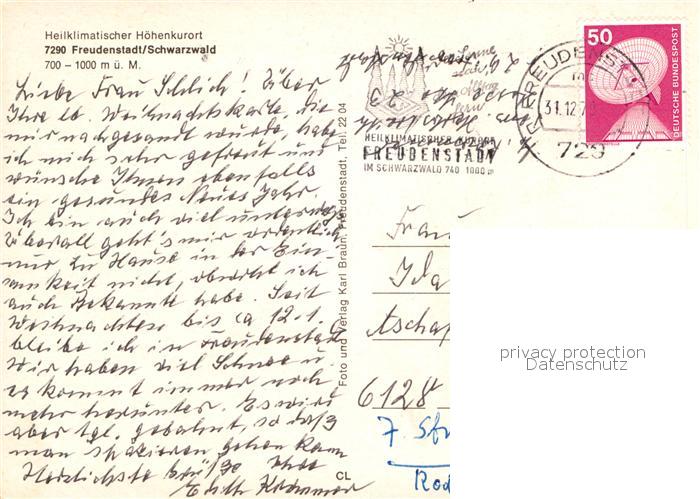 Heilklimatischer Höhenkurort
7290 Freudenstadt/Schwarzwald
700 – 1000 m ü. M.
Liebe Frau Schlich! Über
Ihre lb. Weihnachtskarte, die
mir nachgesandt wurde, habe
ich mich sehr gefreut und
wünsche Ihnen ebenfalls
ein gesundes Neues Jahr.
Ich bin auch viel unterwegs
Überall geht's mir ordentlich
nur zu Hause in der Ein-
samkeit nicht, obwohl ich
auch Bekannte habe. Seit
Weihnachten bis ca 12.1.
bleibe ich in Freudenstadt
Wir haben viel Schnee u.
es kommt immer noch
mehr herunter. Es wird
aber tgl. gebahnt, so daß
man spazieren gehen kann
Herzlichste Grüße Ihre
Edith Krammer
Foto und Verlag Karl Braun, Freudenstadt, Tel. 22 04
CL
HEILKLIMATISCHER KURORT
FREUDENSTADT
IM SCHWARZWALD 740 1000 m
FREUDENST
31.12.7
729
50
DEUTSCHE BUNDESPOST
Frau
Ida
6128
7. Sty
Rod
privacy protection
Datenschutz